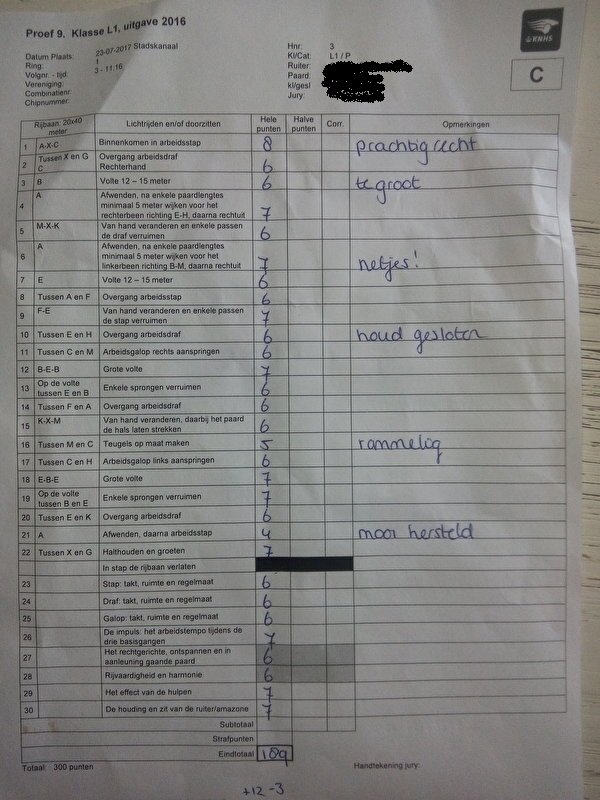 Proef 9. Klasse L1, uitgave 2016
KNHS
C
Datum Plaats: 23-07-2017 Stadskanaal
Ring: 1
Volgnr. - tijd: 3 - 11:16
Vereniging:
Combinatienr:
Chipnummer:
Hnr: 3
Kl/Cat: L1 / P
Ruiter:
Paard:
kl/gesl
Jury:
Rijbaan: 20x40 meter Lichtrijden en/of doorzitten Hele punten Halve punten Corr. Opmerkingen
1 A-X-C Binnenkomen in arbeidsstap 8 prachtig recht
2 Tussen X en G Overgang arbeidsdraf
C Rechterhand 6
3 B Volte 12 – 15 meter 6 te groot
4 A Afwenden, na enkele paardlengtes
minimaal 5 meter wijken voor het
rechterbeen richting E-H, daarna rechtuit 7
5 M-X-K Van hand veranderen en enkele passen
de draf verruimen 6
6 A Afwenden, na enkele paardlengtes
minimaal 5 meter wijken voor het
linkerbeen richting B-M, daarna rechtuit 7 netjes!
7 E Volte 12 – 15 meter 6
8 Tussen A en F Overgang arbeidsstap 6
9 F-E Van hand veranderen en enkele passen
de stap verruimen 7
10 Tussen E en H Overgang arbeidsdraf 6 houd gesloten
11 Tussen C en M Arbeidsgalop rechts aanspringen 6
12 B-E-B Grote volte 7
13 Op de volte
tussen E en B Enkele sprongen verruimen 6
14 Tussen F en A Overgang arbeidsdraf 6
15 K-X-M Van hand veranderen, daarbij het paard
de hals laten strekken 6
16 Tussen M en C Teugels op maat maken 5 rommelig
17 Tussen C en H Arbeidsgalop links aanspringen 6
18 E-B-E Grote volte 7
19 Op de volte
tussen B en E Enkele sprongen verruimen 7
20 Tussen E en K Overgang arbeidsdraf 6
21 A Afwenden, daarna arbeidsstap 4 mooi hersteld
22 Tussen X en G Halthouden en groeten 7
In stap de rijbaan verlaten
23 Stap: takt, ruimte en regelmaat 6
24 Draf: takt, ruimte en regelmaat 6
25 Galop: takt, ruimte en regelmaat 6
26 De impuls: het arbeidstempo tijdens de
drie basisgangen 7
27 Het rechtgerichte, ontspannen en in
aanleuning gaande paard 6
28 Rijvaardigheid en harmonie 6
29 Het effect van de hulpen 7
30 De houding en zit van de ruiter/amazone 7
Subtotaal
Strafpunten
Eindtotaal 189
Totaal: 300 punten
Handtekening jury:
+12 -3